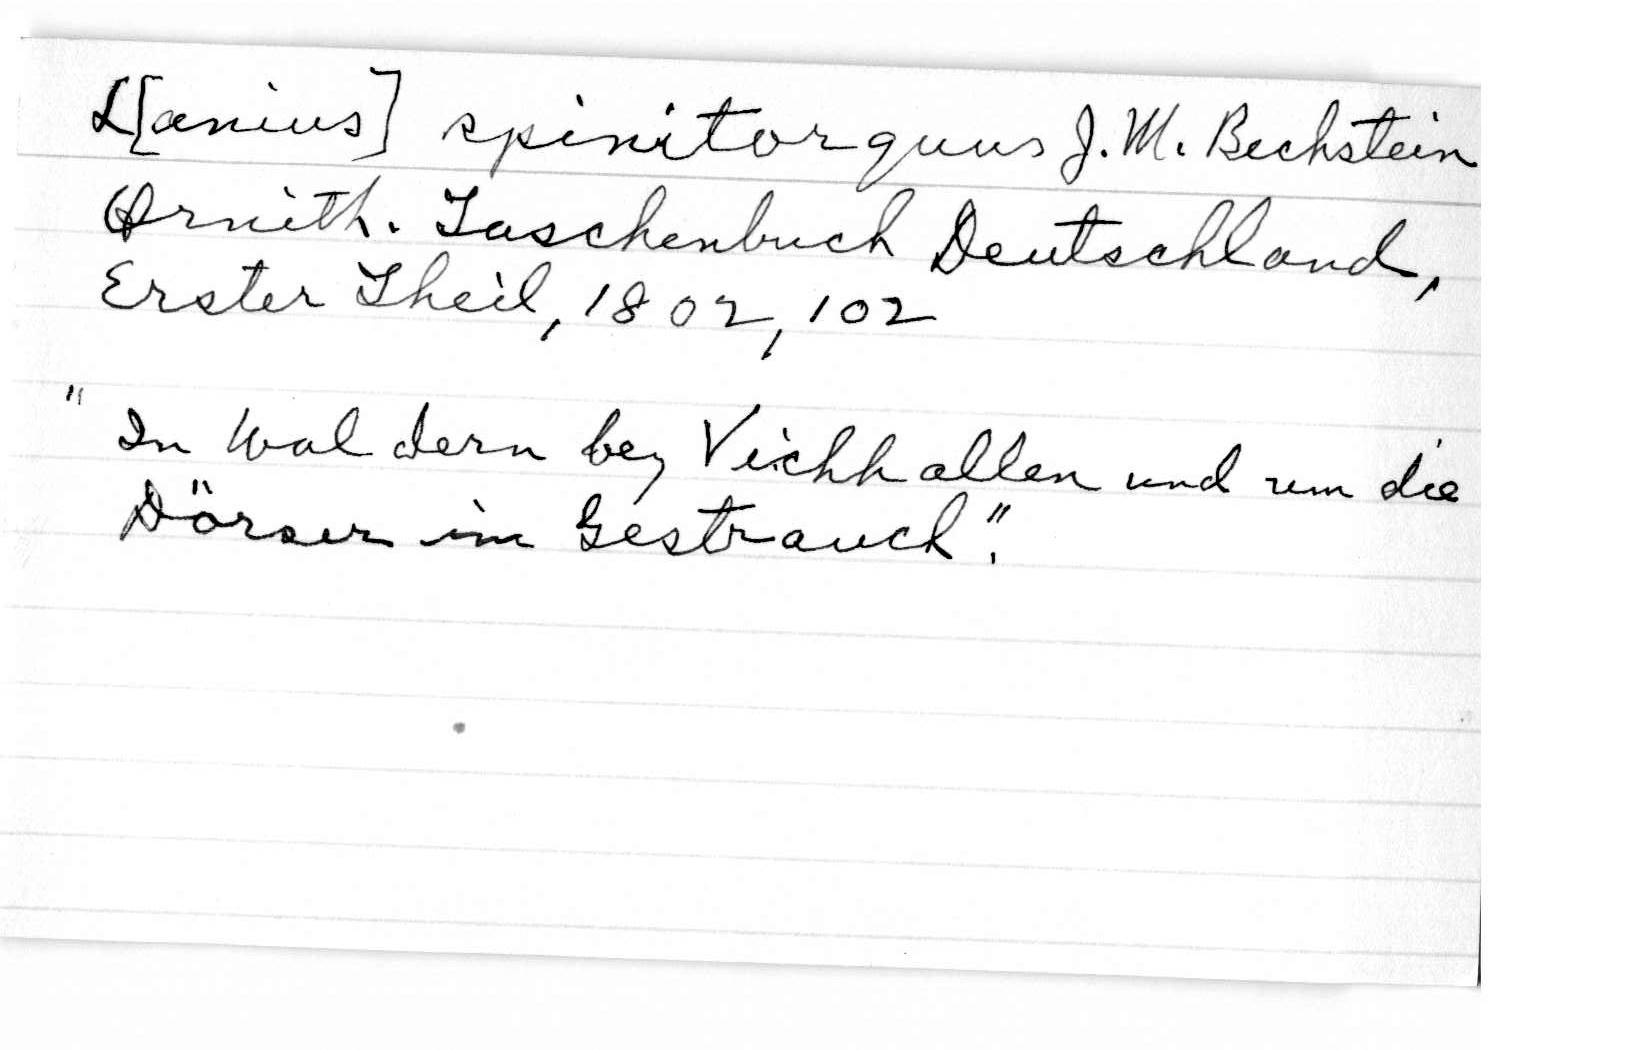 L[anius] spinitorquus J. M. Bechstein
Ornith. Taschenbuch Deutschland,
Erster Theil, 1802, 102
"In Waldern bey Viehhallen und um die
Dörser im Gestrauch".